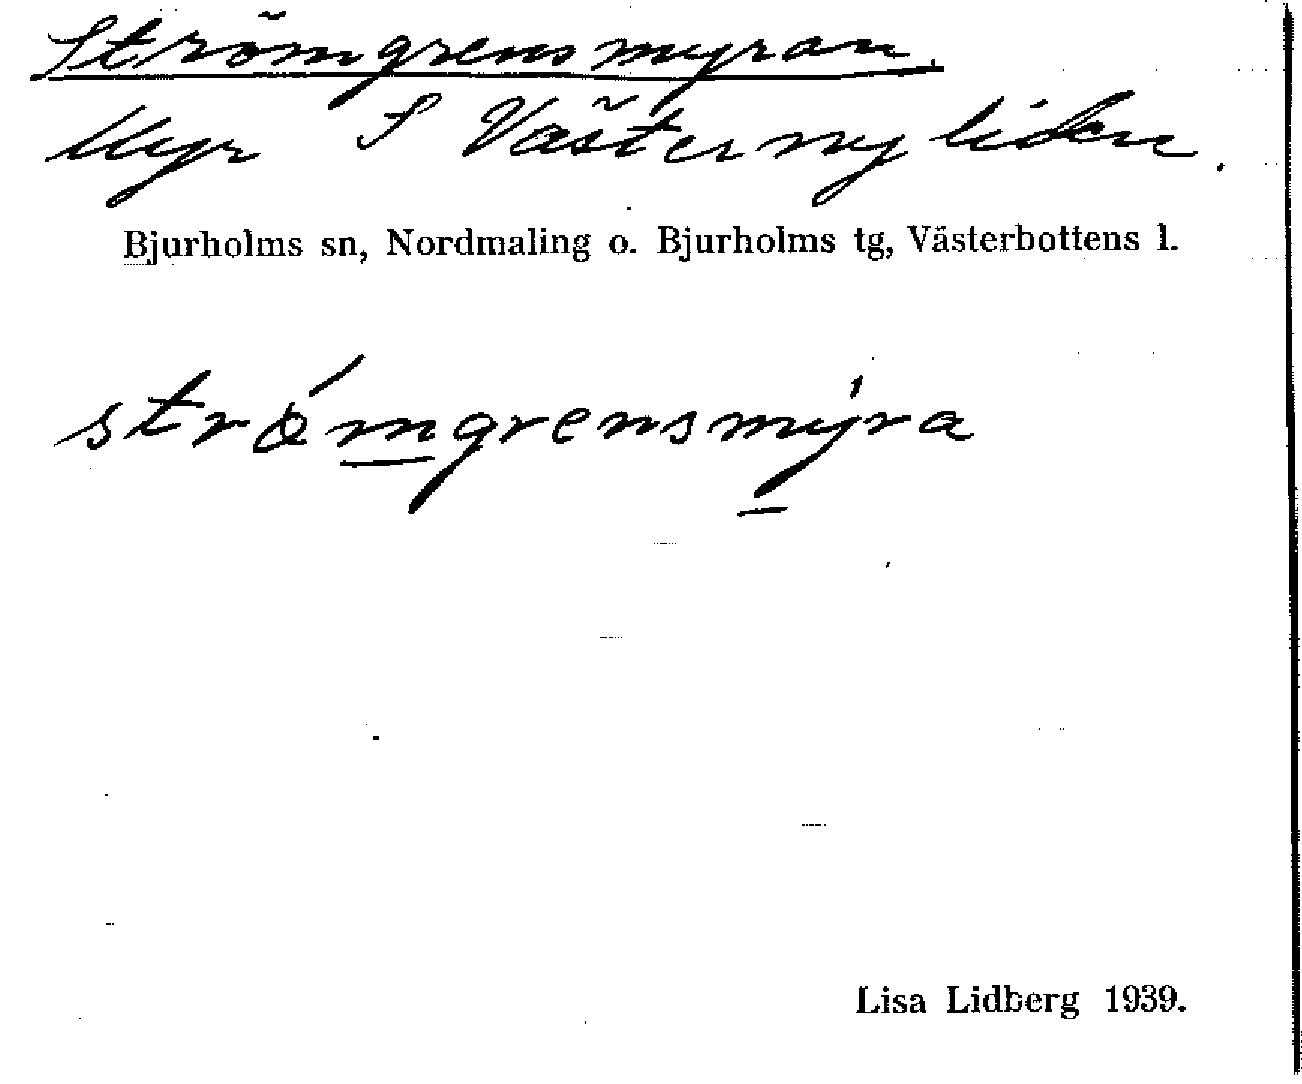 Strömgrensmyran.
Myr S Västernyliden.
Bjurholms sn, Nordmaling o. Bjurholms tg, Västerbottens l.
strǿmgrensmýra
Lisa Lidberg 1939.